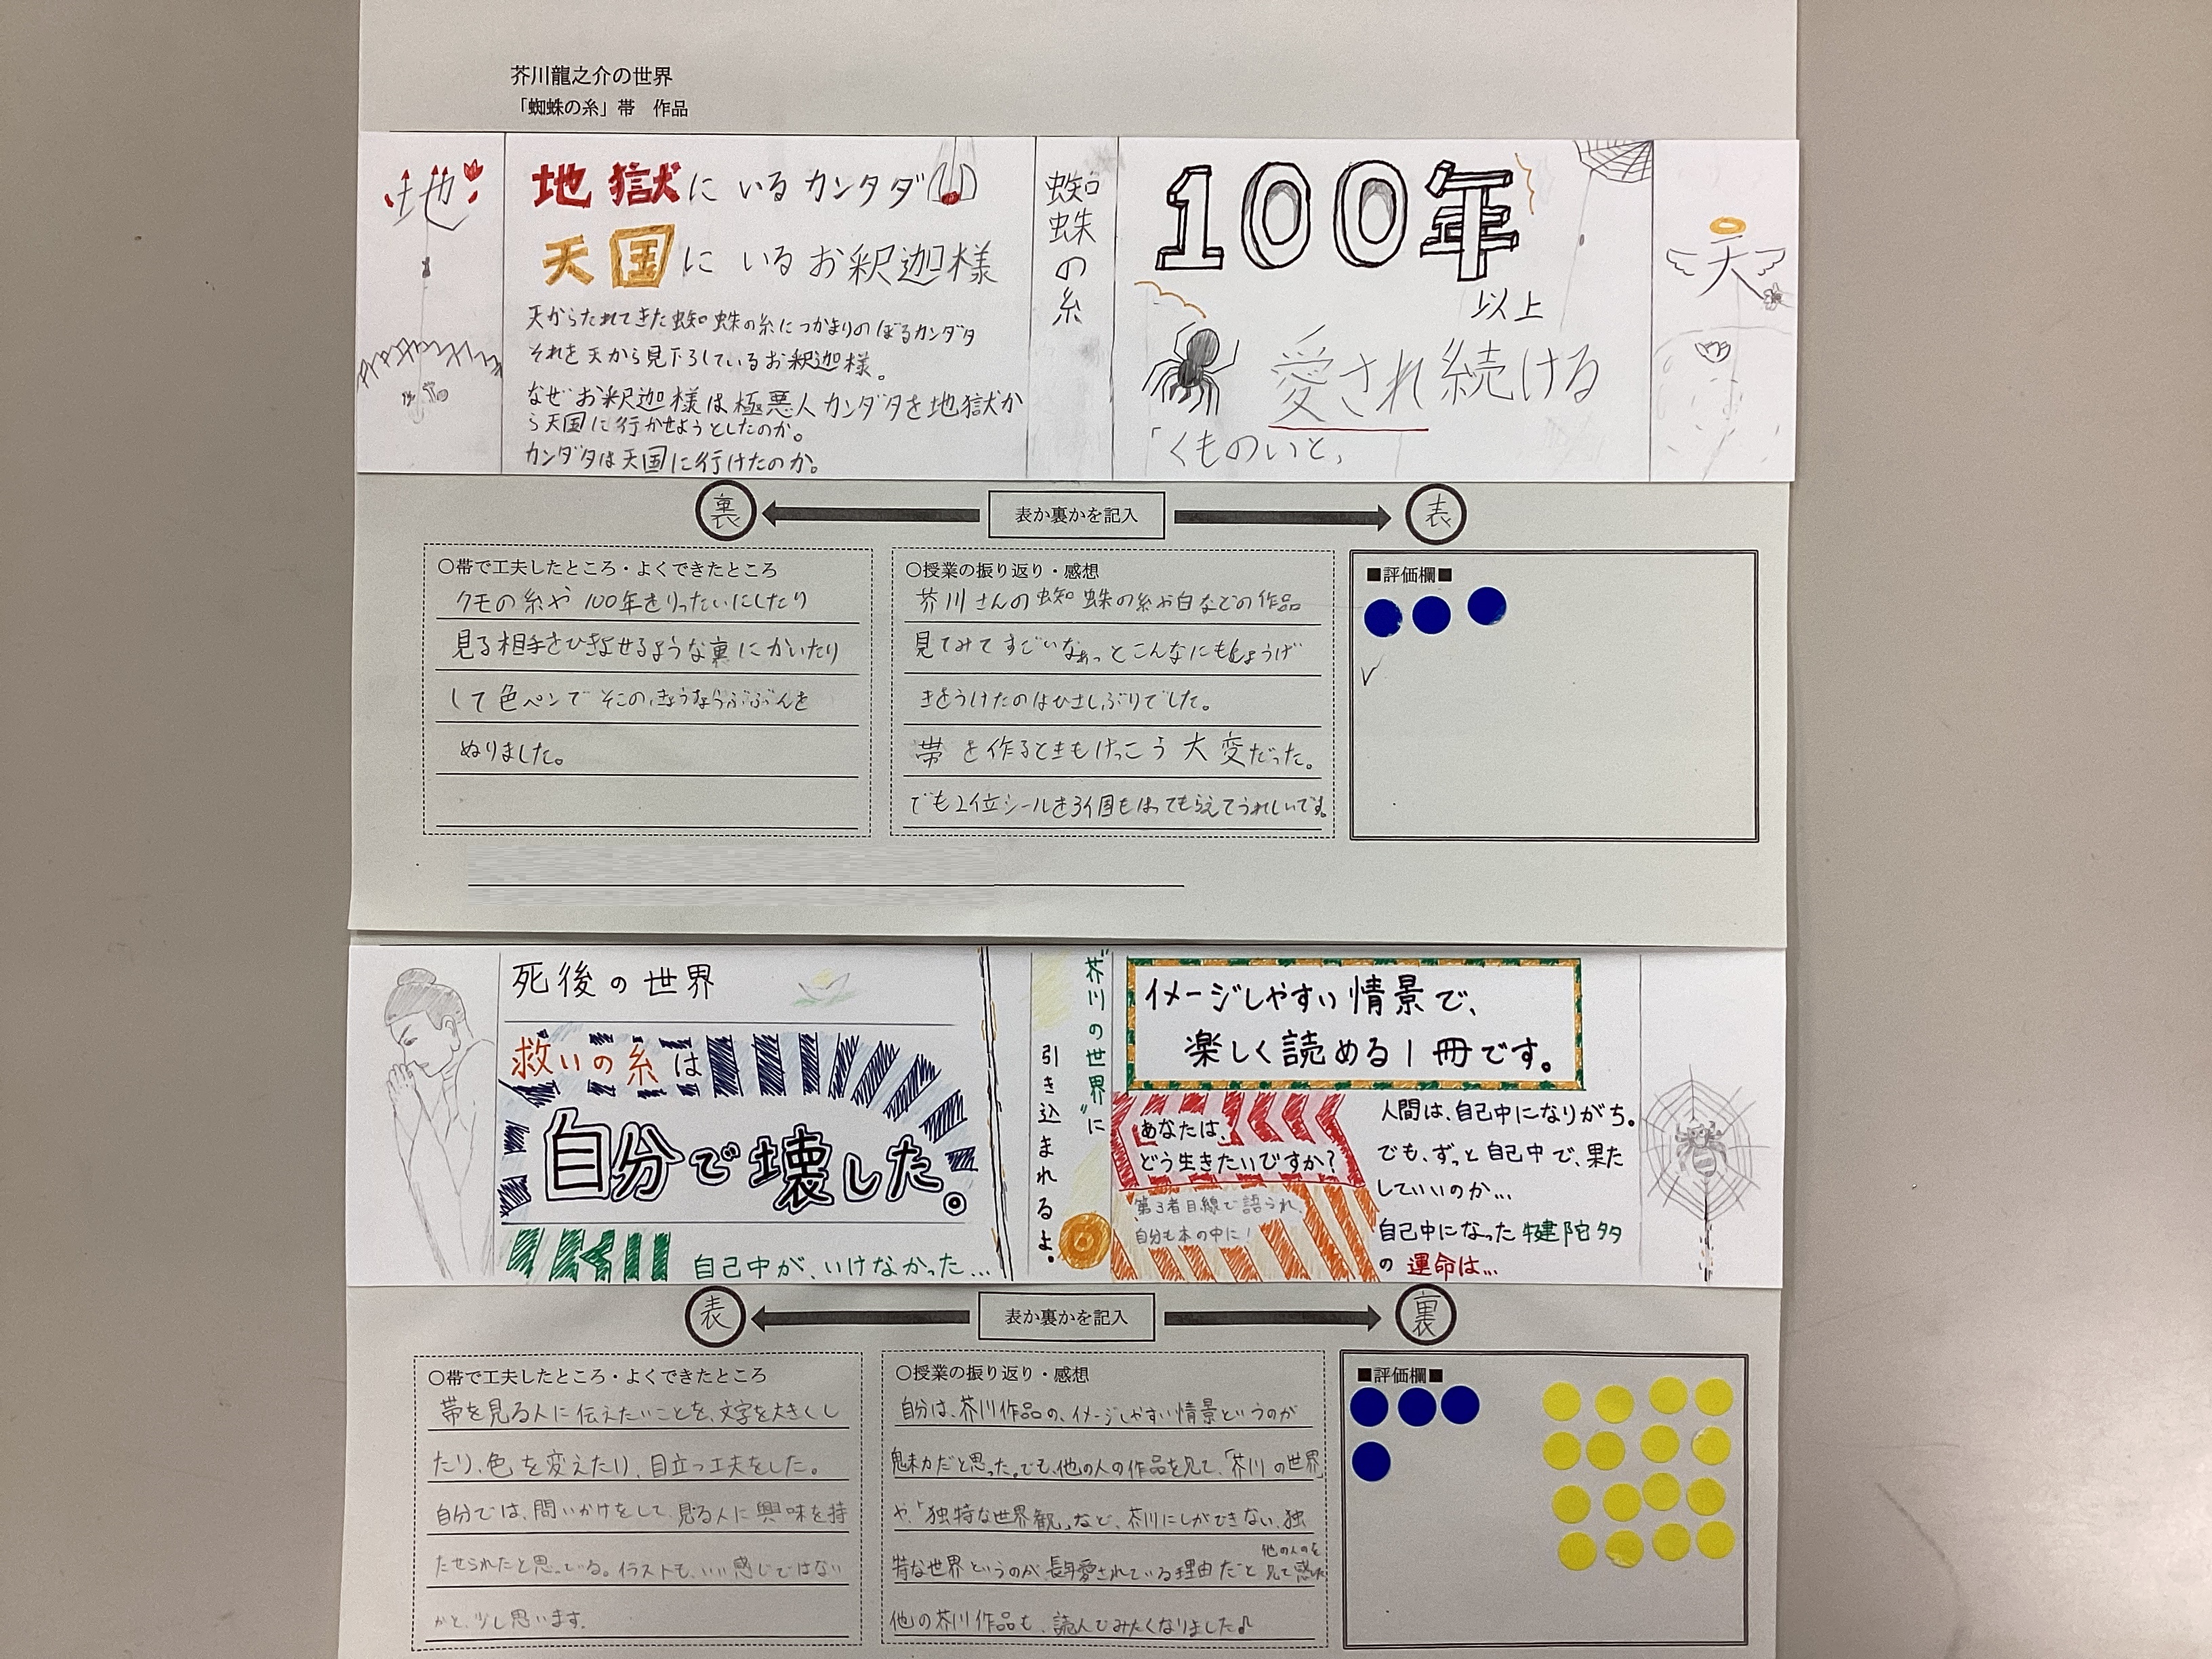 芥川龍之介の世界
「蜘蛛の糸」帯　作品
地
地獄に いるカンダタ
天国に いるお釈迦様
天からたれてきた蜘蛛の糸につかまりのぼるカンダタ
それを天から見下ろしているお釈迦様。
なぜお釈迦様は極悪人カンダタを地獄か
ら天国に行かせようとしたのか。
カンダタは天国に行けたのか。
蜘蛛の糸
100年
以上
愛され続ける
「くものいと」
天
裏
表か裏かを記入
表
○帯で工夫したところ・よくできたところ
クモの糸や100年をりったいにしたり
見る相手をひきよせるような裏にかいたり
して色ペンでそこの
ぬりました。
○授業の振り返り・感想
芥川さんの蜘蛛の糸や白などの作品
見てみてすごいなぁっとこんなにもしょうげ
きをうけたのはひさしぶりでした。
帯を作るときもけっこう大変だった。
でも2位シールを3個もはってもらえてうれしいです。
■評価欄■
死後の世界
救いの糸は
自分で壊した。
自己中が、いけなかった…
"芥川の世界"に
引き込まれるよ。
イメージしやすい情景で、
楽しく読める1冊です。
あなたは、
どう生きたいですか?
第3者目線で語られ、
自分も本の中に!
人間は、自己中になりがち。
でも、ずっと自己中で、果た
していいのか…
自己中になった犍陀多
の運命は…
表
表か裏かを記入
裏
○帯で工夫したところ・よくできたところ
帯を見る人に伝えたいことを、文字を大きくし
たり、色を変えたり、目立つ工夫をした。
自分では、問いかけをして、見る人に興味を持
たせられたと思っている。イラストも、いい感じではない
かと、少し思います。
○授業の振り返り・感想
自分は、芥川作品の、イメージしやすい情景というのが
魅力だと思った。でも、他の人の作品を見て、「芥川の世界」
や、「独特な世界観」など、芥川にしができない、独
特な世界というのが、長年愛されている理由だと他の人のを見て感じた
他の芥川作品も、読んでみたくなりました♪
■評価欄■